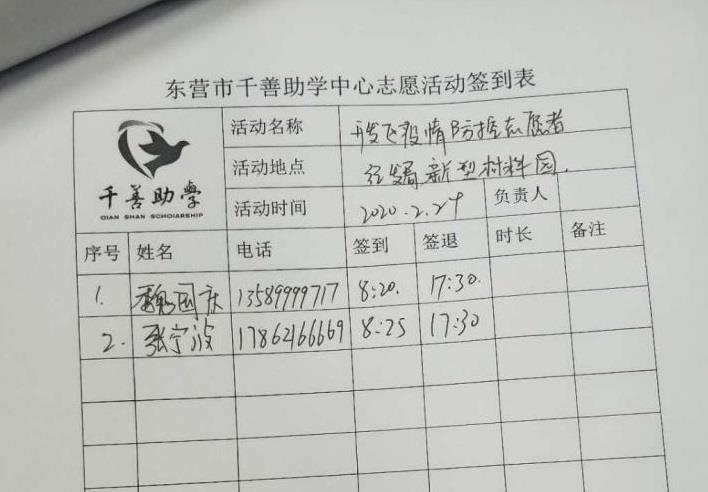 东营市千善助学中心志愿活动签到表
千善助學
QIAN SHAN SCHOIARSHIP
活动名称 开发区疫情防控志愿者
活动地点 经发局新型材料园.
活动时间 2020.2.29 负责人
序号 姓名 电话 签到 签退 时长 备注
1. 魏国庆 13589999717 8:20. 17:30.
2. 张宁波 17862166669 8:25 17:30